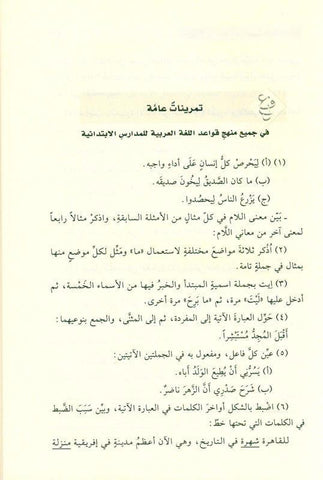 تمريناتٌ عامّة
في جميع منهج قواعد اللغة العربية للمدارس الابتدائية
(١) (أ) لِيَحْرِصْ كلُّ إنسانٍ عَلَى أداءِ واجبه.
(ب) ما كان الصَّدِيقُ لِيخُونَ صديقَه.
(ج) يَزْرعُ الناسُ ليحصُدوا.
ـ بَيِّن معنى اللام في كلّ مثال من الأمثلة السابقة، واذكرْ مثالاً رابعاً
لمعنى آخر من معاني اللَّام:
(٢) اُذكُر ثلاثةَ مواضعَ مختلفةٍ لاستعمال «ما» ومَثِّل لكلّ موضعٍ منها
بمثال في جملةٍ تامة.
(٣) إيت بجملة اسمية المبتدأ والخبرُ فيها من الأسماء الخَمْسة، ثم
أدخل عليها «لَيْتَ» مرة، ثم «ما بَرِحَ» مرة أخرى.
(٤) حَوِّل العبارةَ الآتية إلى المفردة، ثم إلى المثنَّى، والجمع بنوعيهما:
أَقْبَلَ المُجِدُّ مُسْتَبْشِراً.
(٥) عيِّن كلَّ فاعل، ومفعول به في الجملتين الآتيتين:
(أ) يَسُرُّنِي أَنْ يُطِيعَ الوَلَدُ أَباه.
(ب) شَرَحَ صَدْرِي أَنَّ الزَّهَرَ ناضرٌ.
(٦) اضْبط بالشكل أواخرَ الكلمات في العبارة الآتية، وبيِّن سَبَبَ الضَّبط
في الكلمات التي تحتها خطّ:
للقاهرة شهرة في التاريخ، وهي الآن أعظمُ مدينةٍ في إفريقية منزلة